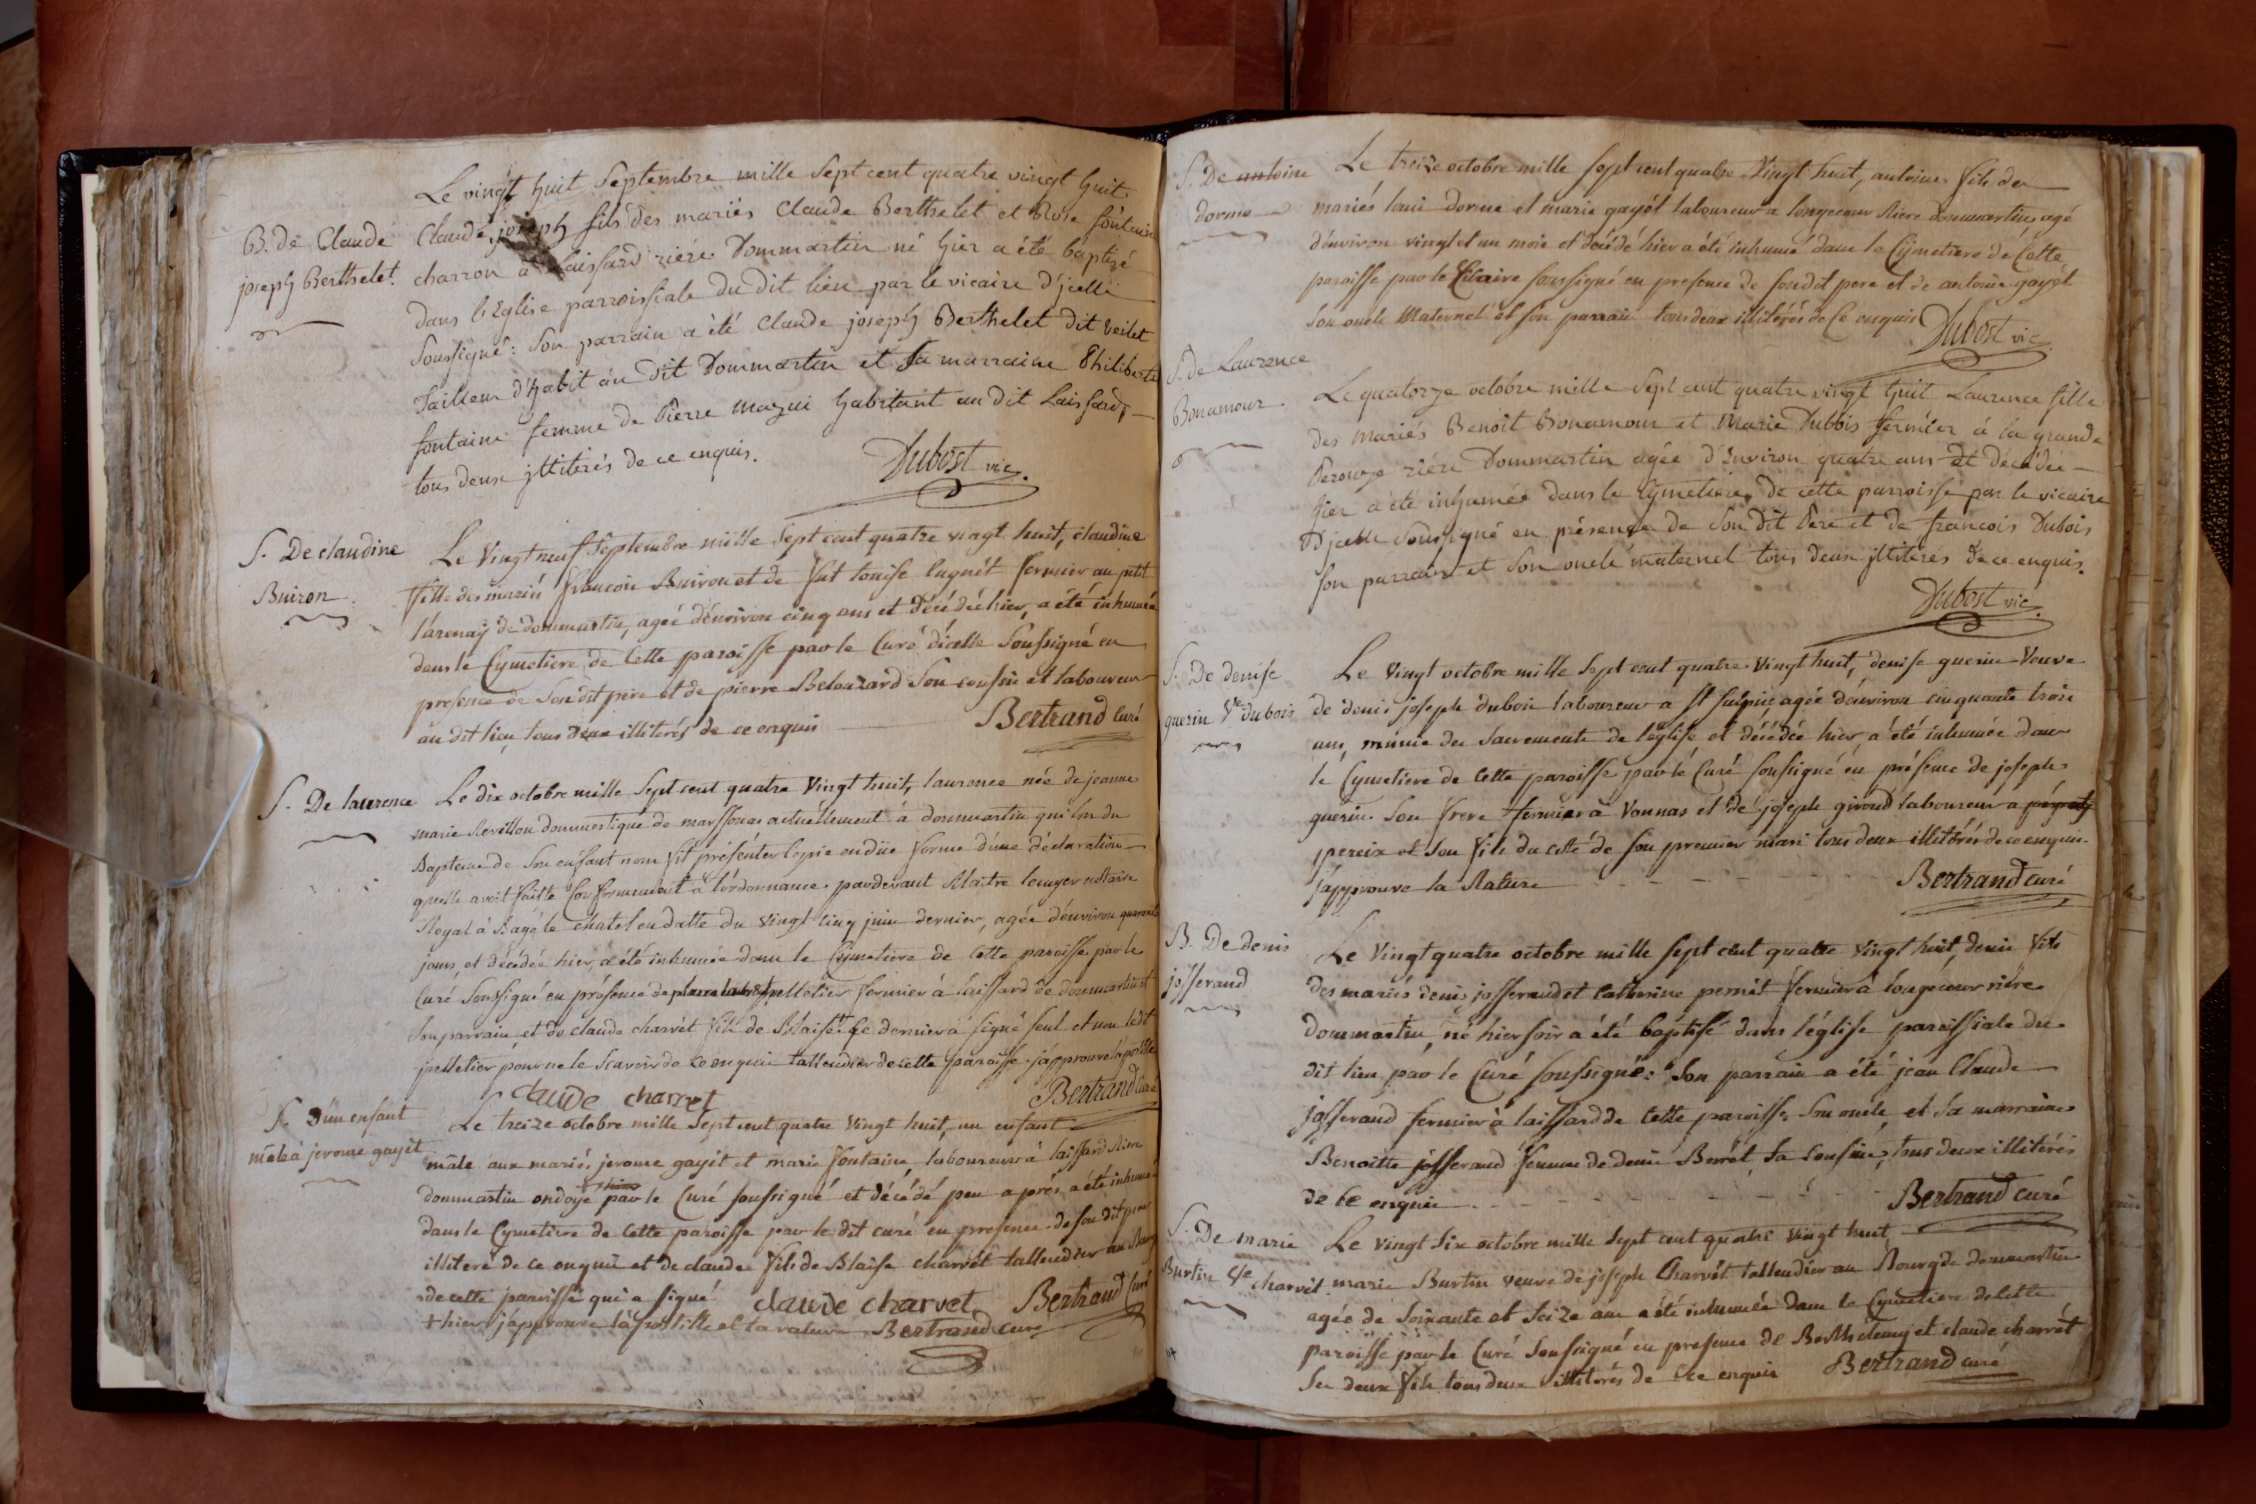 Le vingt huit Septembre mille Sept cent quatre vingt huit
B. de Claude
joseph Berthelet.
Claude joseph fils des mariés Claude Berthelet et Rose fontaine
charron a Laissard riére Dommartin né hier a été baptizé
dans l'Eglise parroissiale du dit lieu par le vicaire d'jcelle
Soussigné: Son parrain a été Claude joseph Berthelet dit
Tailleur d'habit au dit Dommartin et Sa marraine Philiberte
fontaine femme de Pierre Mazui habitant au dit Laissard,
tous deux jllitérés de ce enquis.
Dubost vic.
S. De claudine
Buiron
Le Vingt neuf Septembre mille Sept cent quatre vingt huit, claudine
fille des mariés françois Buiron et de fut louise luquét fermier au petit
l'arenay de dommartin, agée d'environ cinq ans et décédée hier, a été inhumée
dans le Cymetiere de Cette paroisse par le Curé d'icelle Soussigné en
presence de Son dit pere et de pierre Belouzard Son cousin et laboureur
au dit lieu tous deux illiterés de ce enquis
Bertrand Curé
S. De laurence
Le dix octobre mille Sept cent quatre Vingt huit, laurence née de jeanne
marie Revillon dommestique de actuellement à dommartin qui lors du
Bapteme de Son enfant nous fit présenter copie en düe forme d'une déclaration
quelle avoit faitte Conformement à l'ordonnance pardevant Maitre notaire
Royal à Bagé le chatel en datte du vingt cinq juin dernier, agée d'environ quarante
jours, et décédée hier, a été inhumée dans le Cymetiere de Cette paroisse par le
Curé Soussigné en présence de pelletier fermier à laissard de dommartin et
Son parrain, et de claude charvét fils de Blaise Ce dernier a signé seul et non ledt
pelletier pour ne le Scavoir de ce enquis tallendier de cette paroisse j'approuve l'apostille
claude charvet
Bertrand Curé
S. D'un enfant
mâle à jerome gayét
Le treize octobre mille Sept cent quatre Vingt huit, un enfant
mâle aux mariés jerome gayét et marie fontaine, laboureur à laissard Riere
dommartin ondoyé par le Curé soussigné et décédé peu aprés, a été inhumé
dans le Cymetiere de Cette paroisse par le dit curé en presence de son dit pere
illiteré de ce enquis et de claude fils de Blaise charvét tallendier au Bourg
de cette paroisse qui a signé
claude charvet
Bertrand Curé
+ hier j'approuve l'apostille et la rature
Bertrand curé
S. De antoine
dorme
Le treize octobre mille Sept cent quatre Vingt huit, antoine fils des
mariés dorme et marie gayét laboureur a longecour Riere dommartin agé
d'environ vingt et un mois et décédé hier a été inhumé dans le Cymetiere de Cette
paroisse par le Vicaire Soussigné en presence de son dit pere et de antoine gayét
Son oncle Maternel et son parrain tous deux illitérés de Ce enquis
Dubost vic.
S. de Laurence
Bonamour.
Le quatorze octobre mille Sept cent quatre vingt huit Laurence fille
des Mariés Benoît Bonamour et Marie Dubois fermier à la grande
Perouze riére Dommartin agée d'Environ quatre ans et décédée
hier a été inhumée dans le Cymetiere de cette parroisse par le vicaire
D'jcelle Soussigné en présence de Son dit Pere et de francois Dubois
Son parrain et Son oncle maternel tous deux jllitérés de ce enquis.
Dubost vic.
S. De denise
guerin Ve dubois
Le Vingt octobre mille Sept cent quatre Vingt huit, denise guerin Veuve
de denis joseph dubois laboureur a St Sulpice, agée d'environ cinquante trois
ans, munie des Sacrements de l'église et décédée hier, a été inhumée dans
le Cymetiere de Cette paroisse par le Curé Soussigné en présence de joseph
guerin Son frere fermier à Vonnas et de joseph giroud laboureur a
pereix et Son fils du cotté de Son premier mari tous deux illitérés de ce enquis.
j'approuve la Rature
Bertrand curé
B. De denis
josserand
Le Vingt quatre octobre mille Sept cent quatre Vingt huit, denis fils
des mariés denis josserand et Catherine pernét fermier à longecour riére
dommartin, né hier soir a été baptisé dans l'église paroissiale du
dit lieu par le Curé Soussigné: Son parrain a été jean Claude
josserand fermier à laissard de Cette paroisse Son oncle, et Sa marraine
Benoitte josserand femme de denis Berrét, Sa Cousine, tous deux illitérés
de Ce enquis
Bertrand curé
S. De marie
Burtin Ve charvet.
Le vingt Six octobre mille Sept cent quatre Vingt huit
marie Burtin veuve de joseph Charvét tallendier au Bourg de dommartin
agée de Soixante et Seize ans a été inhumée dans le Cymetiere de Cette
paroisse par le Curé Soussigné en presence de Barthelemy et claude charvét
Ses deux fils tous deux illiterés de Ce enquis
Bertrand curé